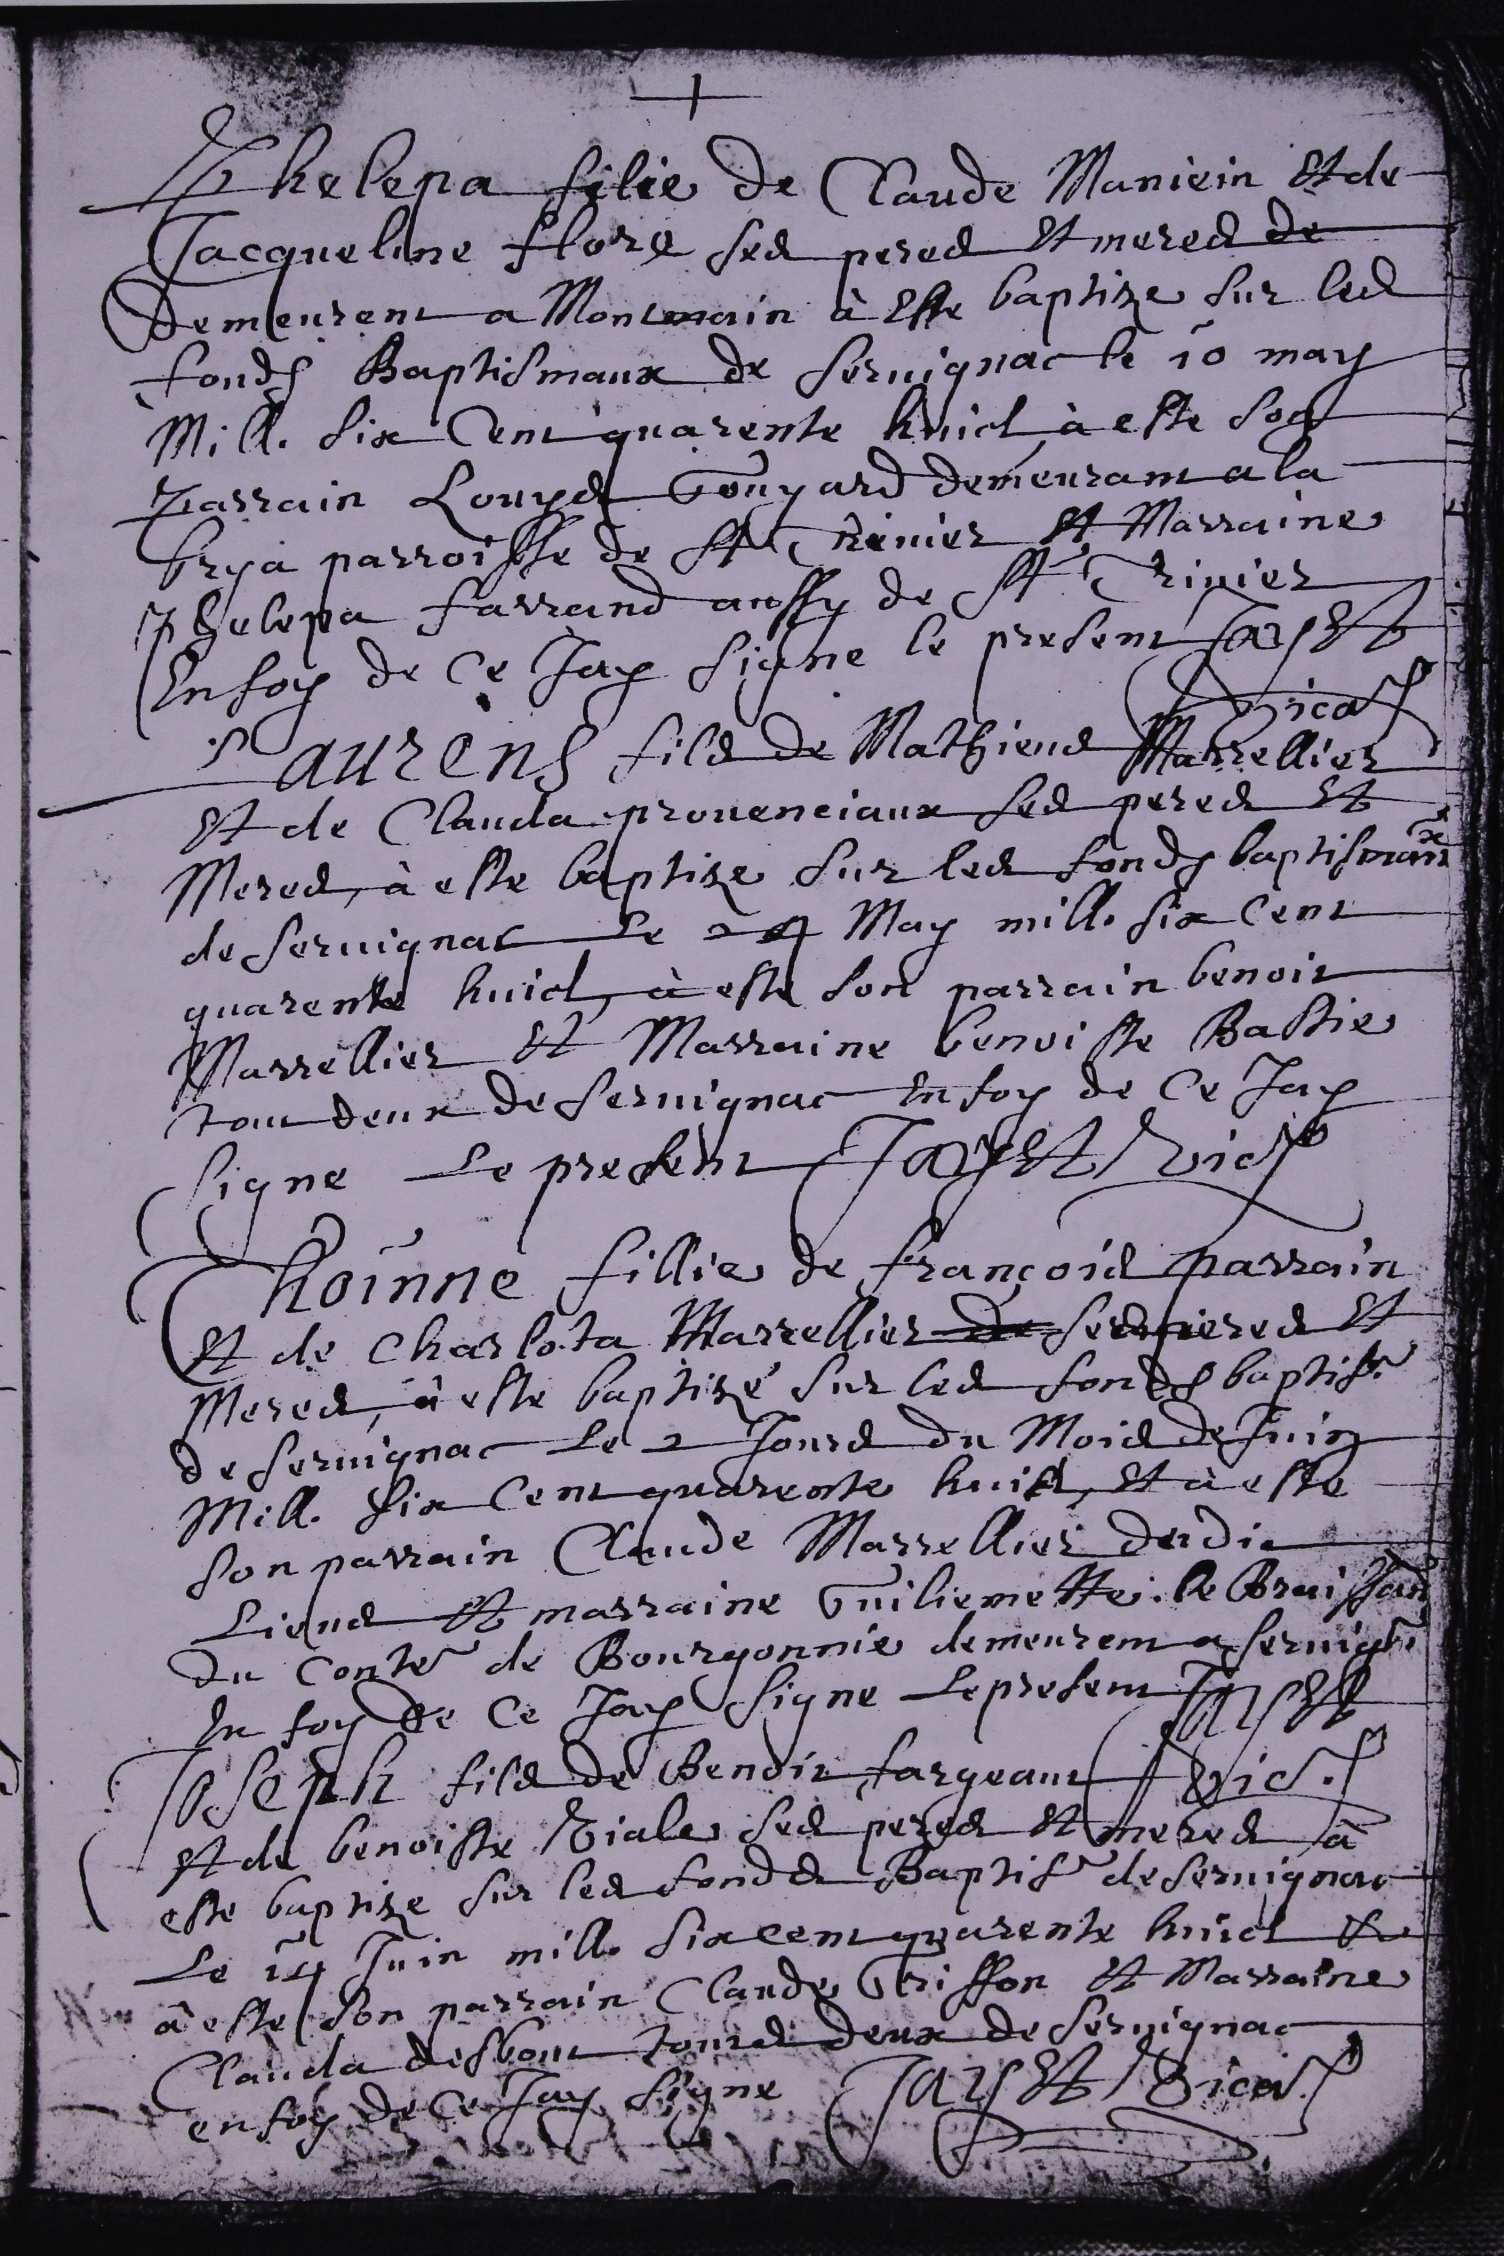 +
Phelepa fillie de Claude Maniein Et de
Jacqueline flore ses peres Et meres de
Demeurent a Montmain à Este baptize sur les
fonds Baptismaux de seruignac le 10 may
Mill. six Cent quarente huict à este son
parrain Louys Gouyard demeurant a la
brya parroisse de St Triuier Et Marraine
Phelepa farrand aussy de St Triuier
En foy de Ce Jay signe le present Jayet
Vicaire
Laurens fils de Mathieus Marrellier
Et de Clauda prouenciaux ses peres Et
Meres, à este baptize sur les fonds baptismaux
de seruignac Le 24 May mill. six Cent
quarente huict, à este son parrain benoit
Marrellier Et Marraine benoiste Bastie
tout deux de seruignac En foy de Ce Jay
signe Le present Jayet Vicre
Thoinne fillie de françois parrain
Et de Charlota Marrellier ses peres Et
Meres, à este baptizé sur les fonds baptism
de seruignac Le 2 Jours du Mois de Juin
Mill. six Cent quarente huict, Et à este
son parrain Claude Marrellier dudic
Lieus Et marraine Guiliemette. le
du Conte de Bourgonnie demeurent a seruign
En foy de Ce Jay signe Le present Jayet
Vic.
Joseph fils de Benoit fargeaut
Et de benoiste Viale ses peres Et meres à
este baptize sur les fonds Baptism de seruignac
Le 14 Juin mill. six cent quarente huict Et
à este son parrain Claude Grisson Et Marraine
Clauda desbout touts deux de seruignac
en foy de Ce Jay signe Jayet Vicaire